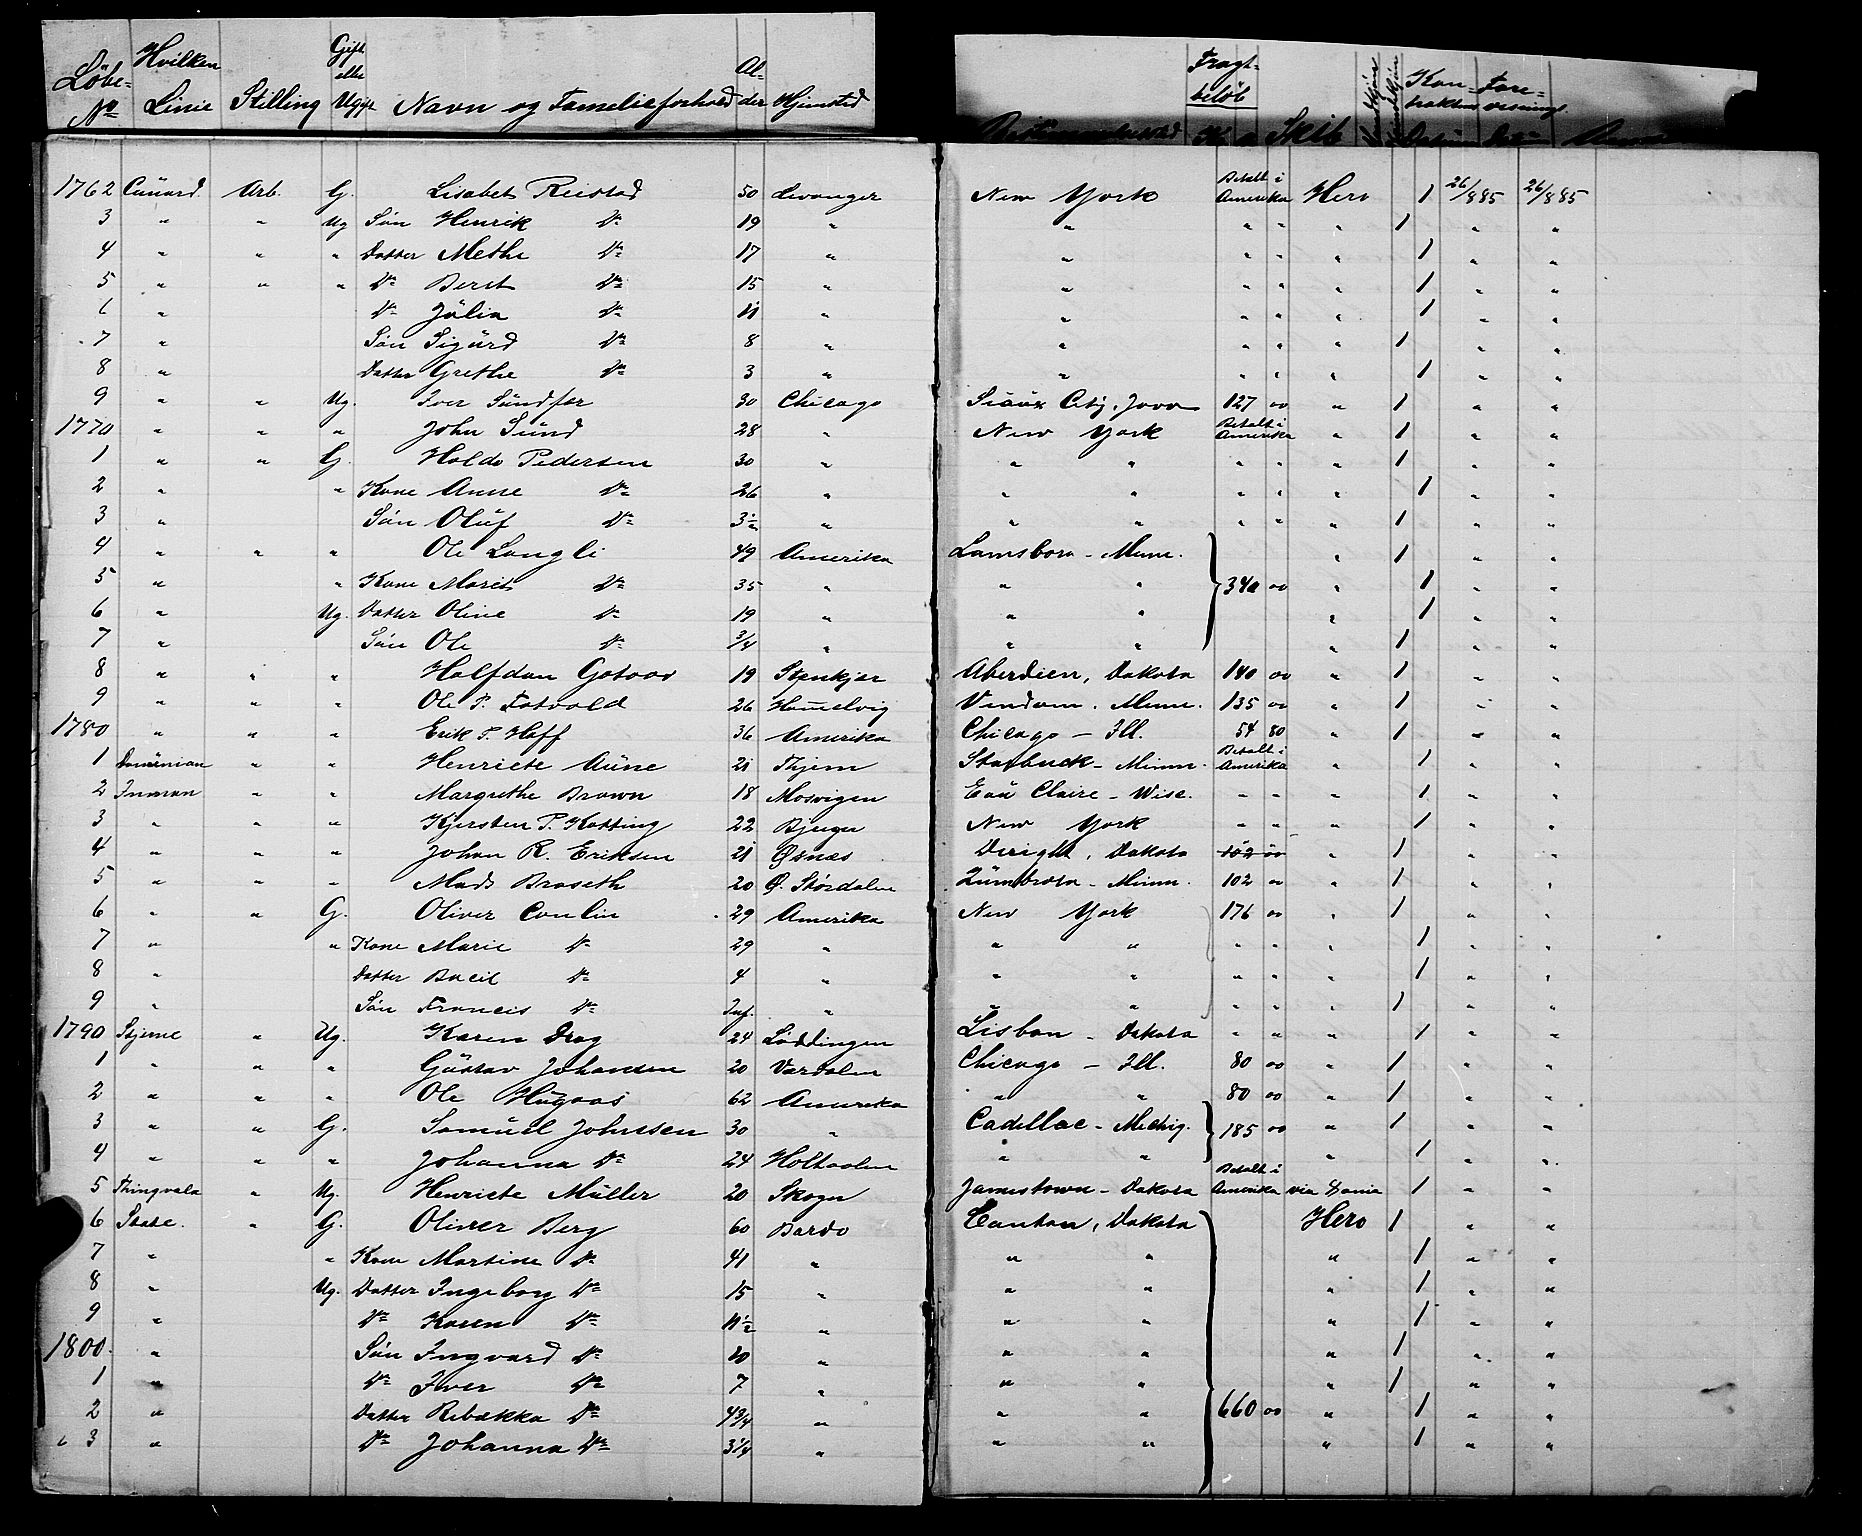 Löbe-No Hvilken Linie Stilling Gift eller Ugift Navn og Familieforhold Alder Hjemsted Fragtbelöb K. a Skib Mandkjön Kontraktens Datum Forevisnings Datum
1762 Cunard. Arb. G. Lisabet Reistad 50 Levanger New York Betalt i Amerika Hero 1 26/8 85 26/8 85
3 " " Ug Sön Henrik Do 19 " " " " " 1 " "
4 " " " Datter Methe Do 17 " " " " " 1 " "
5 " " " Do Berit Do 15 " " " " " 1 " "
6 " Do Júlia Do 11 " " " " " 1 " "
7 " Sön Sigúrd Do 8 " " " " " 1 " "
8 " Datter Grethe Do 3 " " " " " 1 " "
9 " " Ug. Iver Sündfær 30 Chicago Sioúx City, Jova 127 00 " 1 " "
1770 " " " John Sünd 28 " New York Betalt i Amerika " 1 " "
1 " " G. Haldo Pedersen 30 " " " " " " 1 " "
2 " " Kone Anne Do 26 " " " " " " 1 " "
3 " Sön Olúf Do 3 1/2 " " " " " " 1 " "
4 " " " Ole Langli 49 Amerika Lamsbora - Minn. " 1 " "
5 " " Kone Marit Do 35 " " " 340 00 " 1 " "
6 " Ug. Datter Oline Do 19 " " " " 1 " "
7 " Sön Ole Do 3/4 " " " " 1 " "
8 " " " Halfdan Gotaas 19 Stenkjær Aberdien, Dakota 140 00 " 1 " "
9 " " " Ole P. Fotvold 26 Hommelvig Vindom. Minn. 135 00 " 1 " "
1780 " " " Erik P. Hoff 36 Amerika Chicago - Ill. 54 80 " 1 " "
1 Dominion " " Henriete Aúne 21 Thjem Starbuck - Minn. Betalt i Amerika " 1 " "
2 Inman " " Margrethe Brown 18 Mosvigen Eaú Claire - Wisc. " " " 1 " "
3 " " " Kjersten P. Kotting 22 Bjugn New York " " " 1 " "
4 " " " Johan R. Eriksen 21 Øsnæs Dwight, Dakota 102 00 " 1 " "
5 " " " Mads Braseth 20 Ø. Stördalen Zúmbrota - Minn. 102 00 " 1 " "
6 " " G. Oliver Conlin 29 Amerika New York 176 00 " 1 " "
7 " " Kone Marie Do 29 " " " " " " 1 " "
8 " Datter Bucil Do 4 " " " " " " 1 " "
9 " Sön Francis Do Inf. " " " " " " 1 " "
1790 Stjerne " Ug. Karen Drag 24 Löddingen Lisbon - Dakota " " " 1 " "
1 " " " Gústav Johansen 20 Værdalen Chicago - Ill. 80 00 " 1 " "
2 " " " Ole Húgaas 62 Amerika " " 80 00 " 1 " "
3 " " G. Samúel Johnsen 30 " Cadillac - Michig. 185 00 " 1 " "
4 " " " Johanna Do 24 Holtaalen " " " 1 " "
5 Thingvala " Ug. Henriete Müller 20 Skogn Jamestown - Dakota Betalt i Amerika via Dania 1 " "
6 State. " G. Oliver Berg 60 Bardo Canton, Dakota Hero 1 " "
7 " " Kone Martine Do 41 " " " " 1 " "
8 " Ug. Datter Ingeborg Do 15 " " " " 1 " "
9 " Do Karen Do 11 1/2 " " " " 1 " "
1800. " Sön Ingvard Do 10 " " " " 1 " "
1 " Do Iver Do 7 " " " " 1 " "
2 " Datter Rebækka Do 4 3/4 " " " 660 00 " 1 " "
3 " Do Johanna Do 3 1/4 " " " " 1 " "